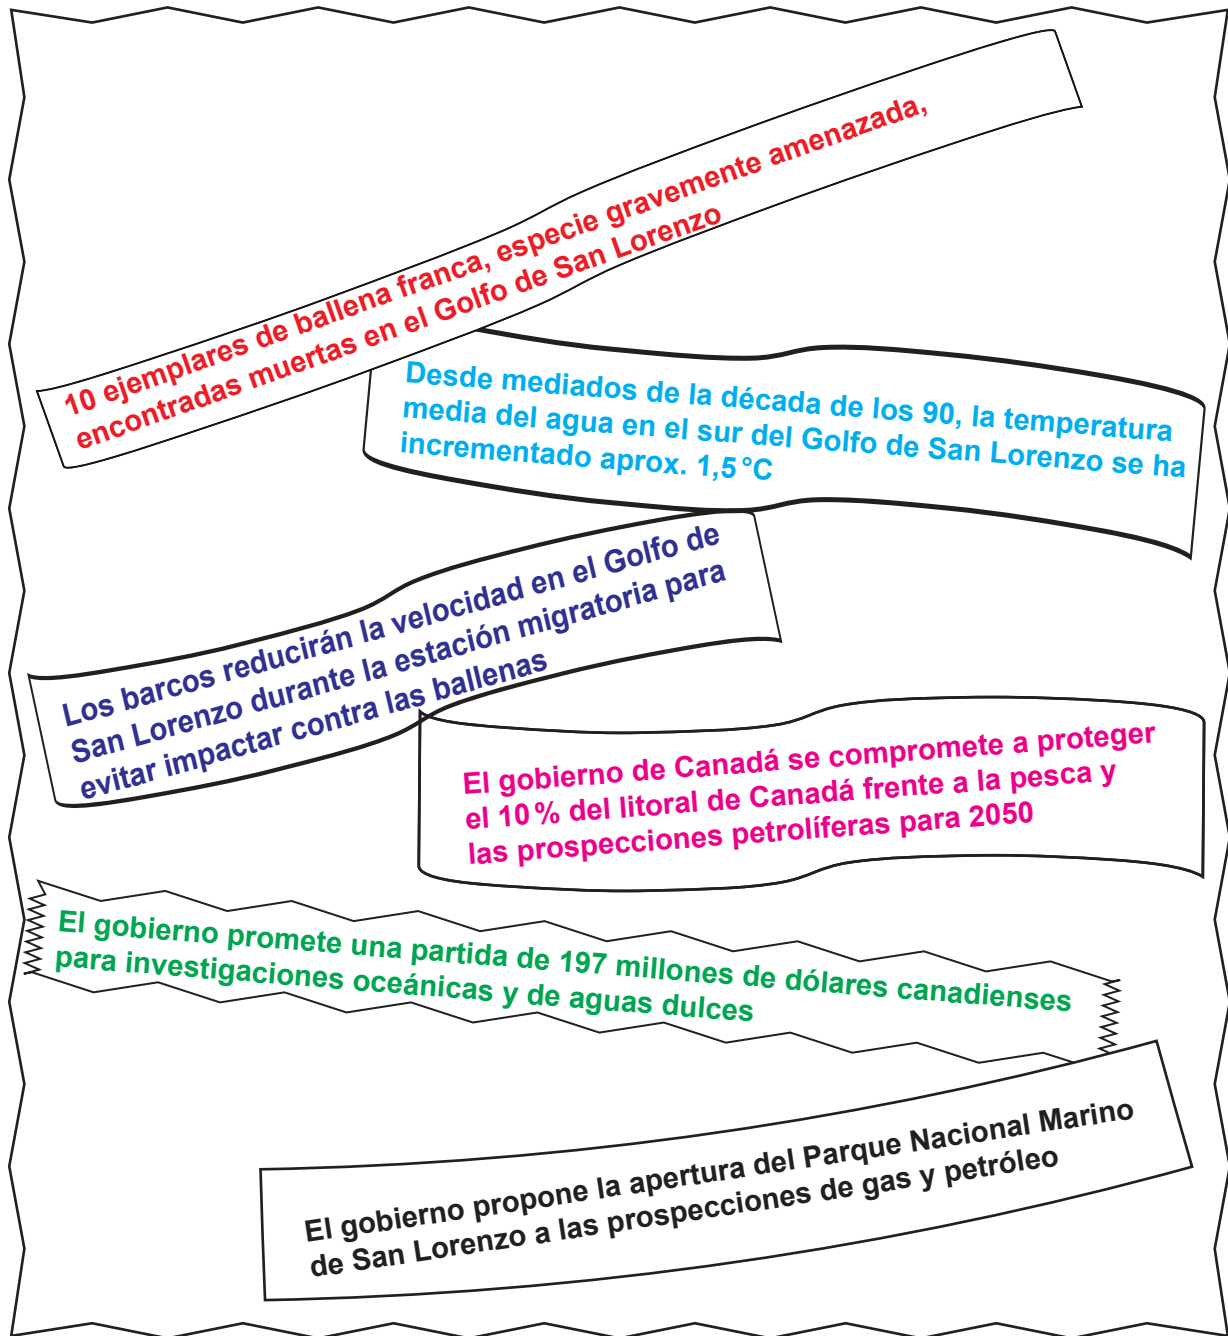 10 ejemplares de ballena franca, especie gravemente amenazada,
encontradas muertas en el Golfo de San Lorenzo
Desde mediados de la década de los 90, la temperatura
media del agua en el sur del Golfo de San Lorenzo se ha
incrementado aprox. 1,5 °C
Los barcos reducirán la velocidad en el Golfo de
San Lorenzo durante la estación migratoria para
evitar impactar contra las ballenas
El gobierno de Canadá se compromete a proteger
el 10 % del litoral de Canadá frente a la pesca y
las prospecciones petrolíferas para 2050
El gobierno promete una partida de 197 millones de dólares canadienses
para investigaciones oceánicas y de aguas dulces
El gobierno propone la apertura del Parque Nacional Marino
de San Lorenzo a las prospecciones de gas y petróleo